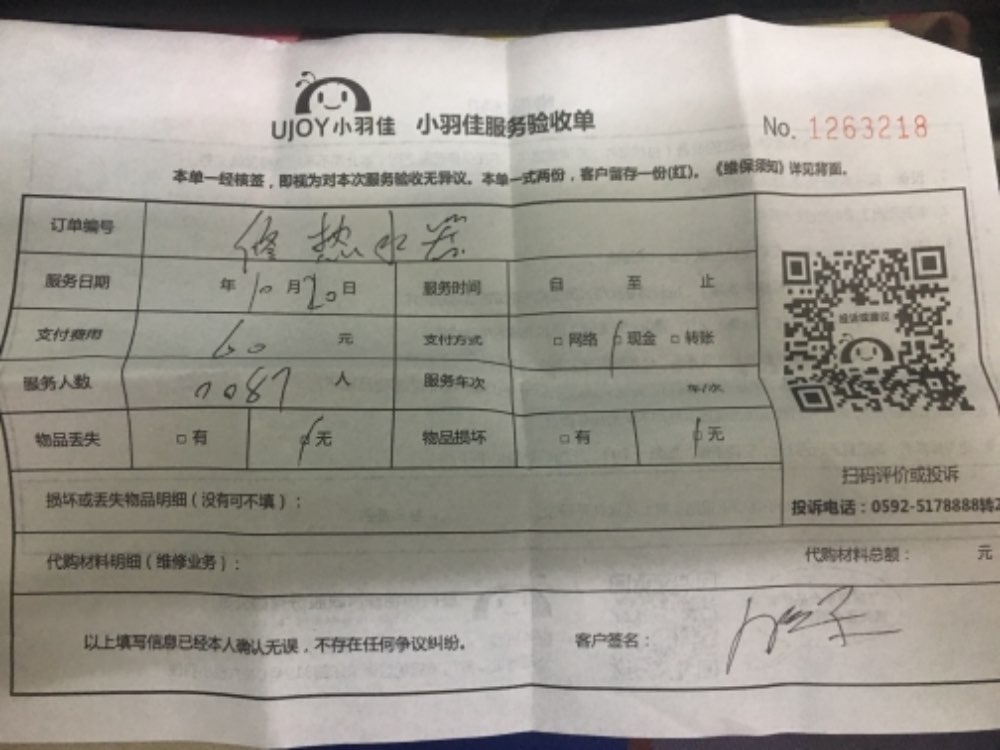 UJOY小羽佳 小羽佳服务验收单
No. 1263218
本单一经核签，即视为对本次服务验收无异议。本单一式两份，客户留存一份(红)。《维保须知》详见背面。
订单编号 修热水器
服务日期 年10月20日 服务时间 自 至 止
支付费用 60 元 支付方式 □网络 □现金 □转账
服务人数 7087 人 服务车次 车/次
物品丢失 □有 □无 物品损坏 □有 □无
投诉或建议
扫码评价或投诉
投诉电话：0592-5178888转2
损坏或丢失物品明细（没有可不填）：
代购材料明细（维修业务）： 代购材料总额： 元
以上填写信息已经本人确认无误，不存在任何争议纠纷。 客户签名：